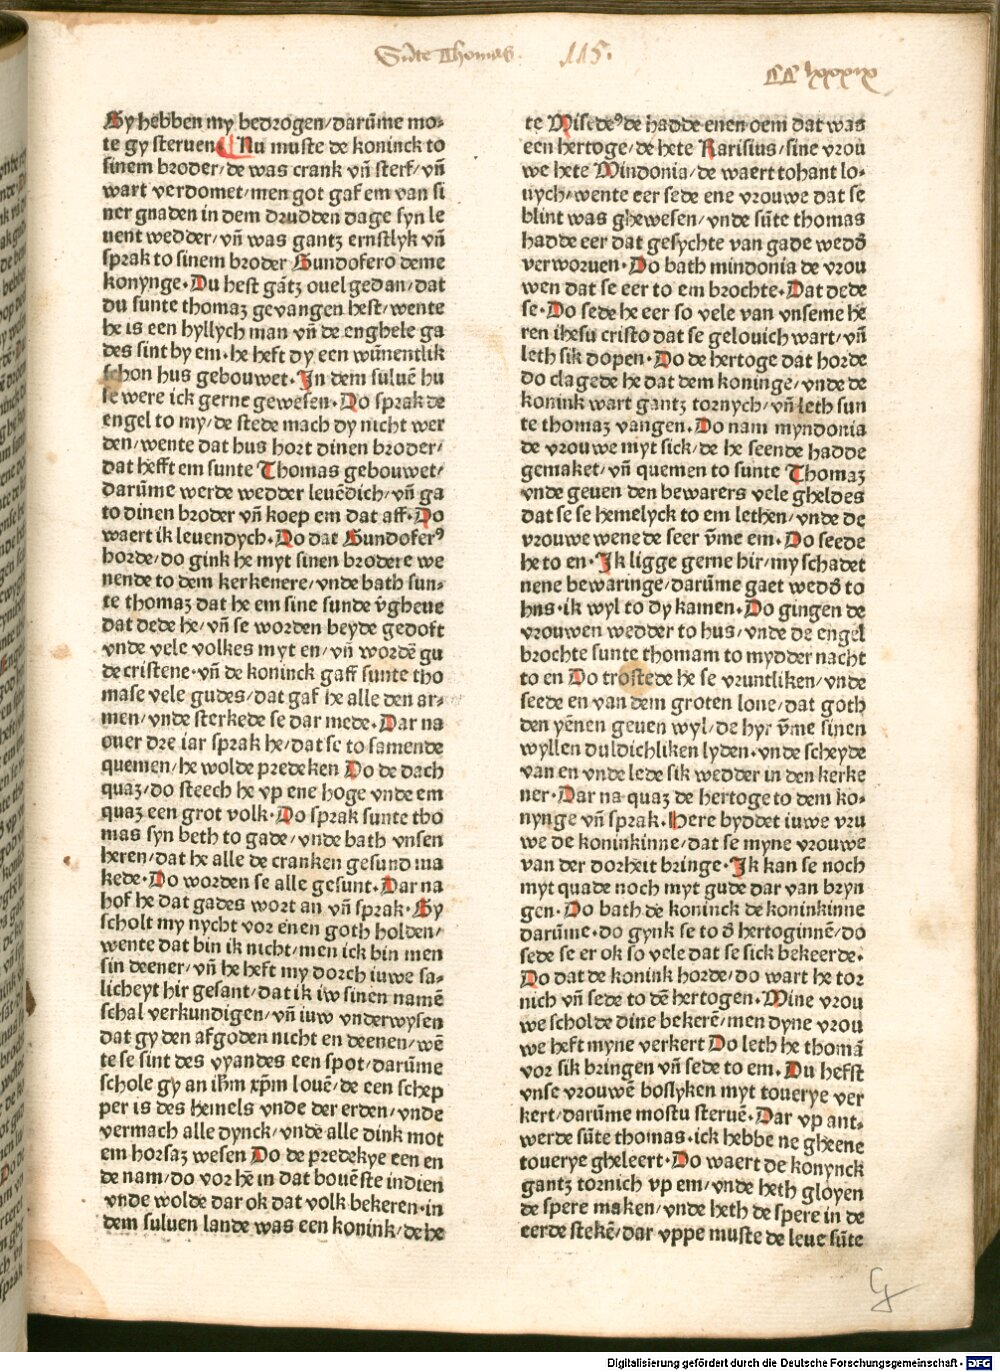 Sūte Thomas. 115.
CC lxxxix
Gy hebben my bedrogen/darūme mo⸗
te gy steruen. Nu muste de koninck to
sinem broder/de was crank vn̄ sterf/vn̄
wart verdomet/men got gaf em van si
ner gnaden in dem drudden dage syn le
uent wedder/vn̄ was gantz ernstlyk vn̄
sprak to sinem broder Gundofero deme
konynge. Du hest gātz ouel gedan/dat
du sunte thomaz gevangen hest/wente
he is een hyllych man vn̄ de enghele ga
des sint by em. he heft dy een wūnentlik
schon hus gebouwet. In dem suluē hu
se were ick gerne gewesen. Do sprak de
engel to my/de stede mach dy nicht wer
den/wente dat hus hort dinen broder/
dat hefft em sunte Thomas gebouwet/
darūme werde wedder leuēdich/vn̄ ga
to dinen broder vn̄ koep em dat aff. Do
waert ik leuendych. Do dat Gundoferꝰ
horde/do gink he myt sinen brodere we
nende to dem kerkenere/vnde bath sun⸗
te thomaz dat he em sine sunde v̄gheue
dat dede he/vn̄ se worden beyde gedoft
vnde vele volkes myt en/vn̄ wordē gu
de cristene. vn̄ de koninck gaff sunte tho
mase vele gudes/dat gaf he alle den ar⸗
men/vnde sterkede se dar mede. Dar na
ouer dre iar sprak he/dat se to samende
quemen/he wolde predeken Do de dach
quaz/do steech he vp ene hoge vnde em
quaz een grot volk. Do sprak sunte tho
mas syn beth to gade/vnde bath vnsen
heren/dat he alle de cranken gesund ma
kede. Do worden se alle gesunt. Dar na
hof he dat gades wort an vn̄ sprak. Gy
scholt my nycht vor enen goth holden/
wente dat bin ik nicht/men ick bin men
sin deener/vn̄ he heft my dorch iuwe sa⸗
licheyt hir gesant/dat ik iw sinen namē
schal verkundigen/vn̄ iuw vnderwysen
dat gy den afgoden nicht en deenen/wē
te se sint des vyandes een spot/darūme
schole gy an ihm̄ xp̄m louē/de een schep
per is des hemels vnde der erden/vnde
vermach alle dynck/vnde alle dink mot
em horsaz wesen Do de predekye een en
de nam/do vor hē in dat bouēste indien
vnde wolde dar ok dat volk bekeren. in
dem suluen lande was een konink/de he
te Misedeꝰ de hadde enen oem dat was
een hertoge/de hete Karisius/sine vrou
we hete Mindonia/de waert tohant lo⸗
uych/wente eer sede ene vrouwe dat se
blint was ghewesen/vnde sūte thomas
hadde eer dat gesychte van gade wedd̄
verworuen. Do bath mindonia de vrou
wen dat se eer to em brochte. Dat dede
se. Do sede he eer so vele van vnseme he
ren ihesu cristo dat se gelouich wart/vn̄
leth sik dopen. Do de hertoge dat horde
do clagede he dat dem koninge/vnde de
konink wart gantz tornych/vn̄ leth sun
te thomaz vangen. Do nam myndonia
de vrouwe myt sick/de he seende hadde
gemaket/vn̄ quemen to sunte Thomaz
vnde geuen den bewarers vele gheldes
dat se se hemelyck to em lethen/vnde de
vrouwe wenede seer v̄me em. Do seede
he to en. Ik ligge gerne hir/my schadet
nene bewaringe/darūme gaet wedd̄ to
hus. ik wyl to dy kamen. Do gingen de
vrouwen wedder to hus/vnde de engel
brochte sunte thomam to mydder nacht
to en Do trostede he se vruntliken/vnde
seede en van dem groten lone/dat goth
den yēnen geuen wyl/de hyr v̄me sinen
wyllen duldichliken lyden. vnde scheyde
van en vnde lede sik wedder in den kerke
ner. Dar na quaz de hertoge to dem ko⸗
nynge vn̄ sprak. Here byddet iuwe vru
we de koninkinne/dat se myne vrouwe
van der dorheit bringe. Ik kan se noch
myt quade noch myt gude dar van bryn
gen. Do bath de koninck de koninkinne
darūme. do gynk se to d̄ hertoginnē/do
sede se er ok so vele dat se sick bekeerde.
Do dat de konink horde/do wart he tor
nich vn̄ sede to dē hertogen. Mine vrou
we scholde dine bekerē/men dyne vrou
we heft myne verkert Do leth he thomā
vor sik bringen vn̄ sede to em. Du hefst
vnse vrouwē boslyken myt touerye ver
kert/darūme mostu steruē. Dar vp ant⸗
werde sūte thomas. ick hebbe ne gheene
touerye gheleert. Do waert de konynck
gantz tornich vp em/vnde heth gloyen
de spere maken/vnde heth de spere in de
eerde stekē/dar vppe muste de leue sūte
Digitalisierung gefördert durch die Deutsche Forschungsgemeinschaft - DFG